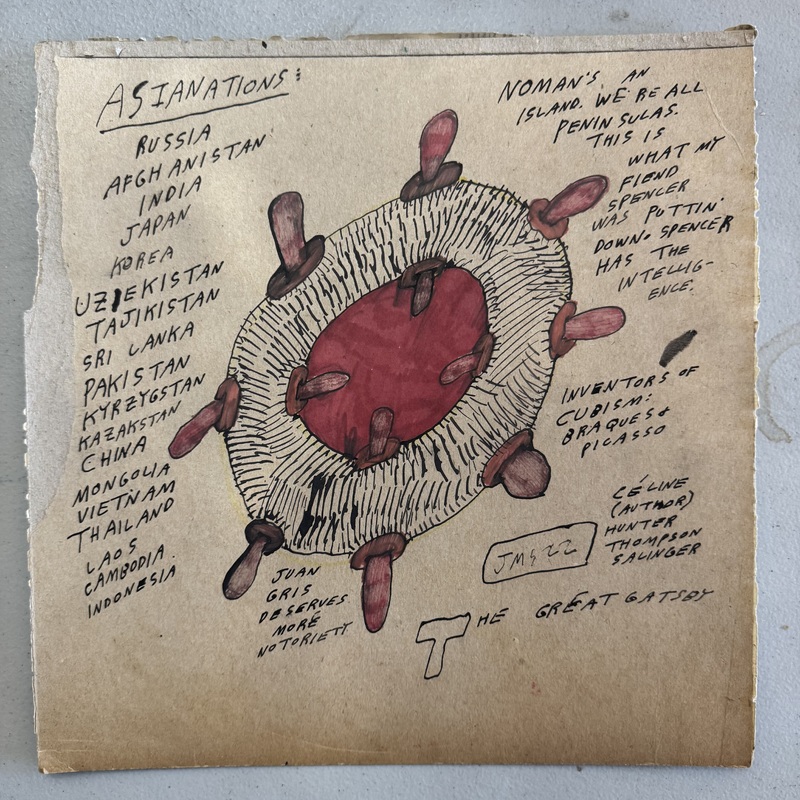 ASIANATIONS:
RUSSIA
AFGHANISTAN
INDIA
JAPAN
KOREA
UZBEKISTAN
TAJIKISTAN
SRI LANKA
PAKISTAN
KYRZYGSTAN
KAZAKSTAN
CHINA
MONGOLIA
VIETNAM
THAILAND
LAOS
CAMBODIA.
INDONESIA
NOMAN'S AN
ISLAND. WE'RE ALL
PENINSULAS.
THIS IS
WHAT MY
FIEND
SPENCER
WAS PUTTIN'
DOWN. SPENCER
HAS THE
INTELLIG-
ENCE.
INVENTORS OF
CUBISM:
BRAQUES &
PICASSO
CÉLINE
(AUTHOR)
HUNTER
THOMPSON
SALINGER
JMS 22
JUAN
GRIS
DESERVES
MORÉ
NOTORIETY
THE GRÉAT GATSBY